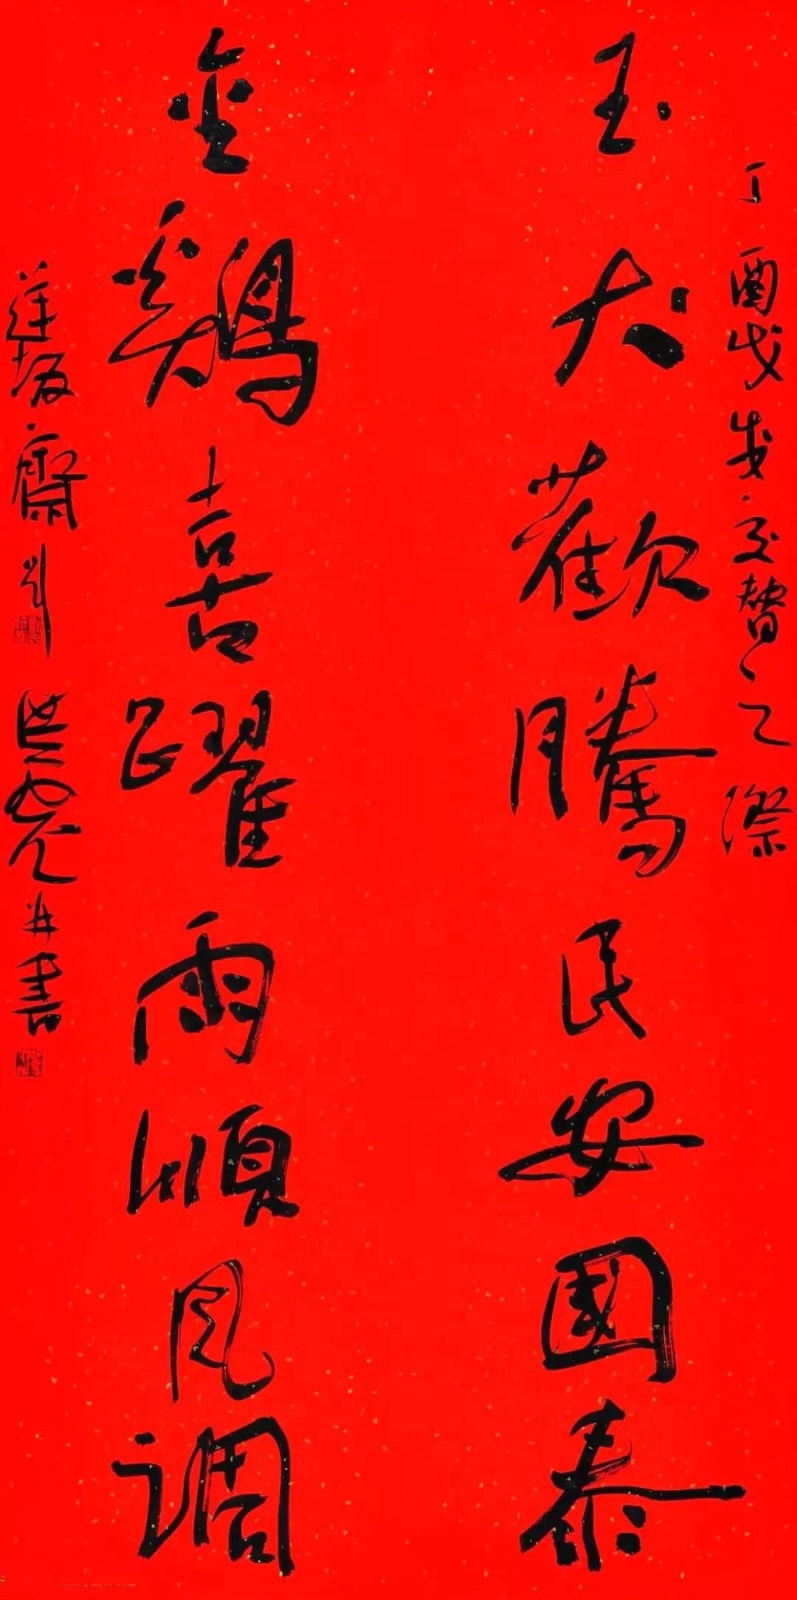 丁酉戊戌交替之際
玉犬歡騰民安國泰
金鷄喜躍雨順風調
齋劉并書